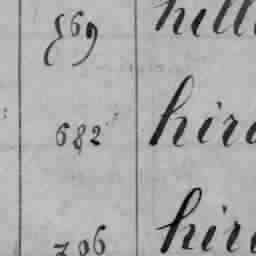 569 hill
682 hir
706 hir